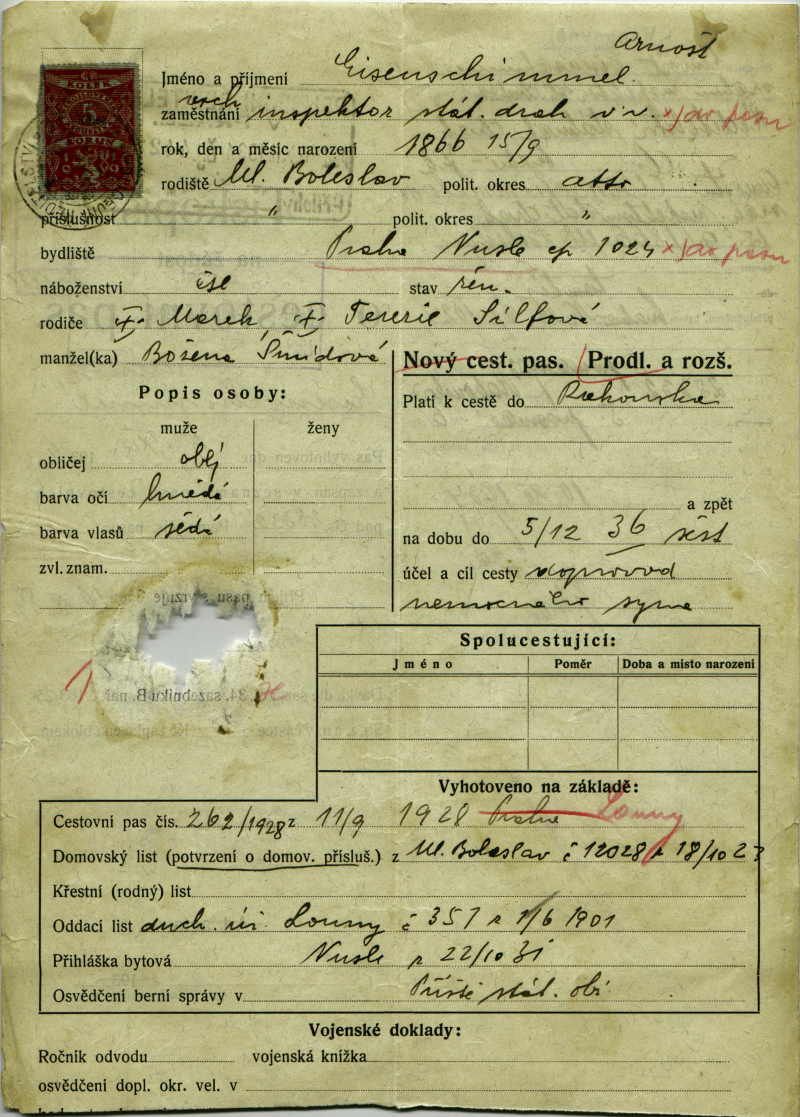 Arnošt
Jméno a příjmení Eisenschimmel
vrch
zaměstnání inspektor stát. drah v v. × jak pasu
rok, den a měsíc narození 1866 15/9
rodiště Ml. Boleslav polit. okres atto
příslušnost " polit. okres "
bydliště Praha Nusle čp 1024 × jak pasu
náboženství stav žen.
rodiče Marek, Terezie
manžel(ka) Božena Šmídová
Nový cest. pas. Prodl. a rozš.
Popis osoby:
Platí k cestě do Rakouska
muže ženy
obličej obl
barva očí hnědé
a zpět
barva vlasů šedé
na dobu do 5/12 36 šest
zvl. znam.
účel a cíl cesty doprovod
nemocného syna
Spolucestující:
Jméno Poměr Doba a místo narození
Vyhotoveno na základě:
Cestovní pas čís. 262/1928 z 11/9 1928 Praha Louny
Domovský list (potvrzení o domov. přísluš.) z Ml. Boleslav č 12028 z 18/10 23
Křestní (rodný) list
Oddací list duch. úř Louny č 357 z 1/6 1901
Přihláška bytová Nusle z 22/10 31
Osvědčení berní správy v stát.
Vojenské doklady:
Ročník odvodu vojenská knížka
osvědčení dopl. okr. vel. v